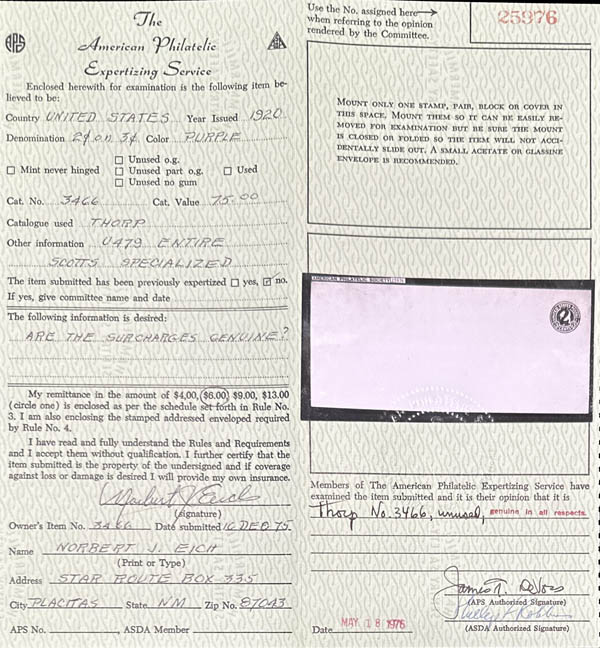 The
APS American Philatelic ASDA
Expertizing Service
Enclosed herewith for examination is the following item be-
lieved to be:
Country UNITED STATES Year Issued 1920
Denomination 2¢ on 3¢ Color PURPLE
Unused o.g.
Mint never hinged Unused part o.g. Used
Unused no gum
Cat. No. 3466 Cat. Value 75.00
Catalogue used THORP
Other information U479 ENTIRE
SCOTTS SPECIALIZED
The item submitted has been previously expertized yes, no.
If yes, give committee name and date
The following information is desired:
ARE THE SURCHARGES GENUINE?
My remittance in the amount of $4.00, $6.00, $9.00, $13.00
(circle one) is enclosed as per the schedule set forth in Rule No.
3. I am also enclosing the stamped addressed enveloped required
by Rule No. 4.
I have read and fully understand the Rules and Requirements
and I accept them without qualification. I further certify that the
item submitted is the property of the undersigned and if coverage
against loss or damage is desired I will provide my own insurance.
Norbert J Eich
(signature)
Owner's Item No. 3466 Date submitted 16 DEC 75
Name NORBERT J. EICH
(Print or Type)
Address STAR ROUTE BOX 335
City PLACITAS State NM Zip No. 87043
APS No. , ASDA Member
Use the No. assigned here
when referring to the opinion
rendered by the Committee.
25976
MOUNT ONLY ONE STAMP, PAIR, BLOCK OR COVER IN
THIS SPACE. MOUNT THEM SO IT CAN BE EASILY RE-
MOVED FOR EXAMINATION BUT BE SURE THE MOUNT
IS CLOSED OR FOLDED SO THE ITEM WILL NOT ACCI-
DENTALLY SLIDE OUT. A SMALL ACETATE OR GLASSINE
ENVELOPE IS RECOMMENDED.
AMERICAN PHILATELIC SOCIETY
2
Members of The American Philatelic Expertizing Service have
examined the item submitted and it is their opinion that it is
Thorp No. 3466, unused, genuine in all respects.
James T. DeVoss
(APS Authorized Signature)
(ASDA Authorized Signature)
Date MAY 18 1976